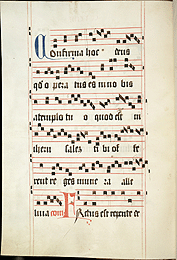 Confirma hoc deus
q̃d o pera tus es in no bis
a templo tu o quod est in
iheru salez ti bi of fe
rent re ges mune ra alle
luia com Factus est repente de